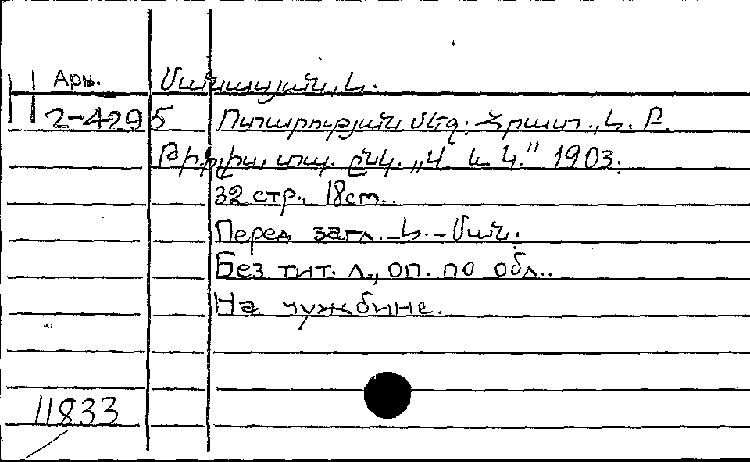 Арм. Մանասյան, Ն.
2-4295 Օտարության մեջ. Հրատ. Ն. Բ.
Թիֆլիս, տպ. ընկ. „Վ. և Կ." 1903.
32 стр., 18cm.
Перед загл. Ն. - Ման.
Без тит. л., оп. по обл..
На чужбине.
11833